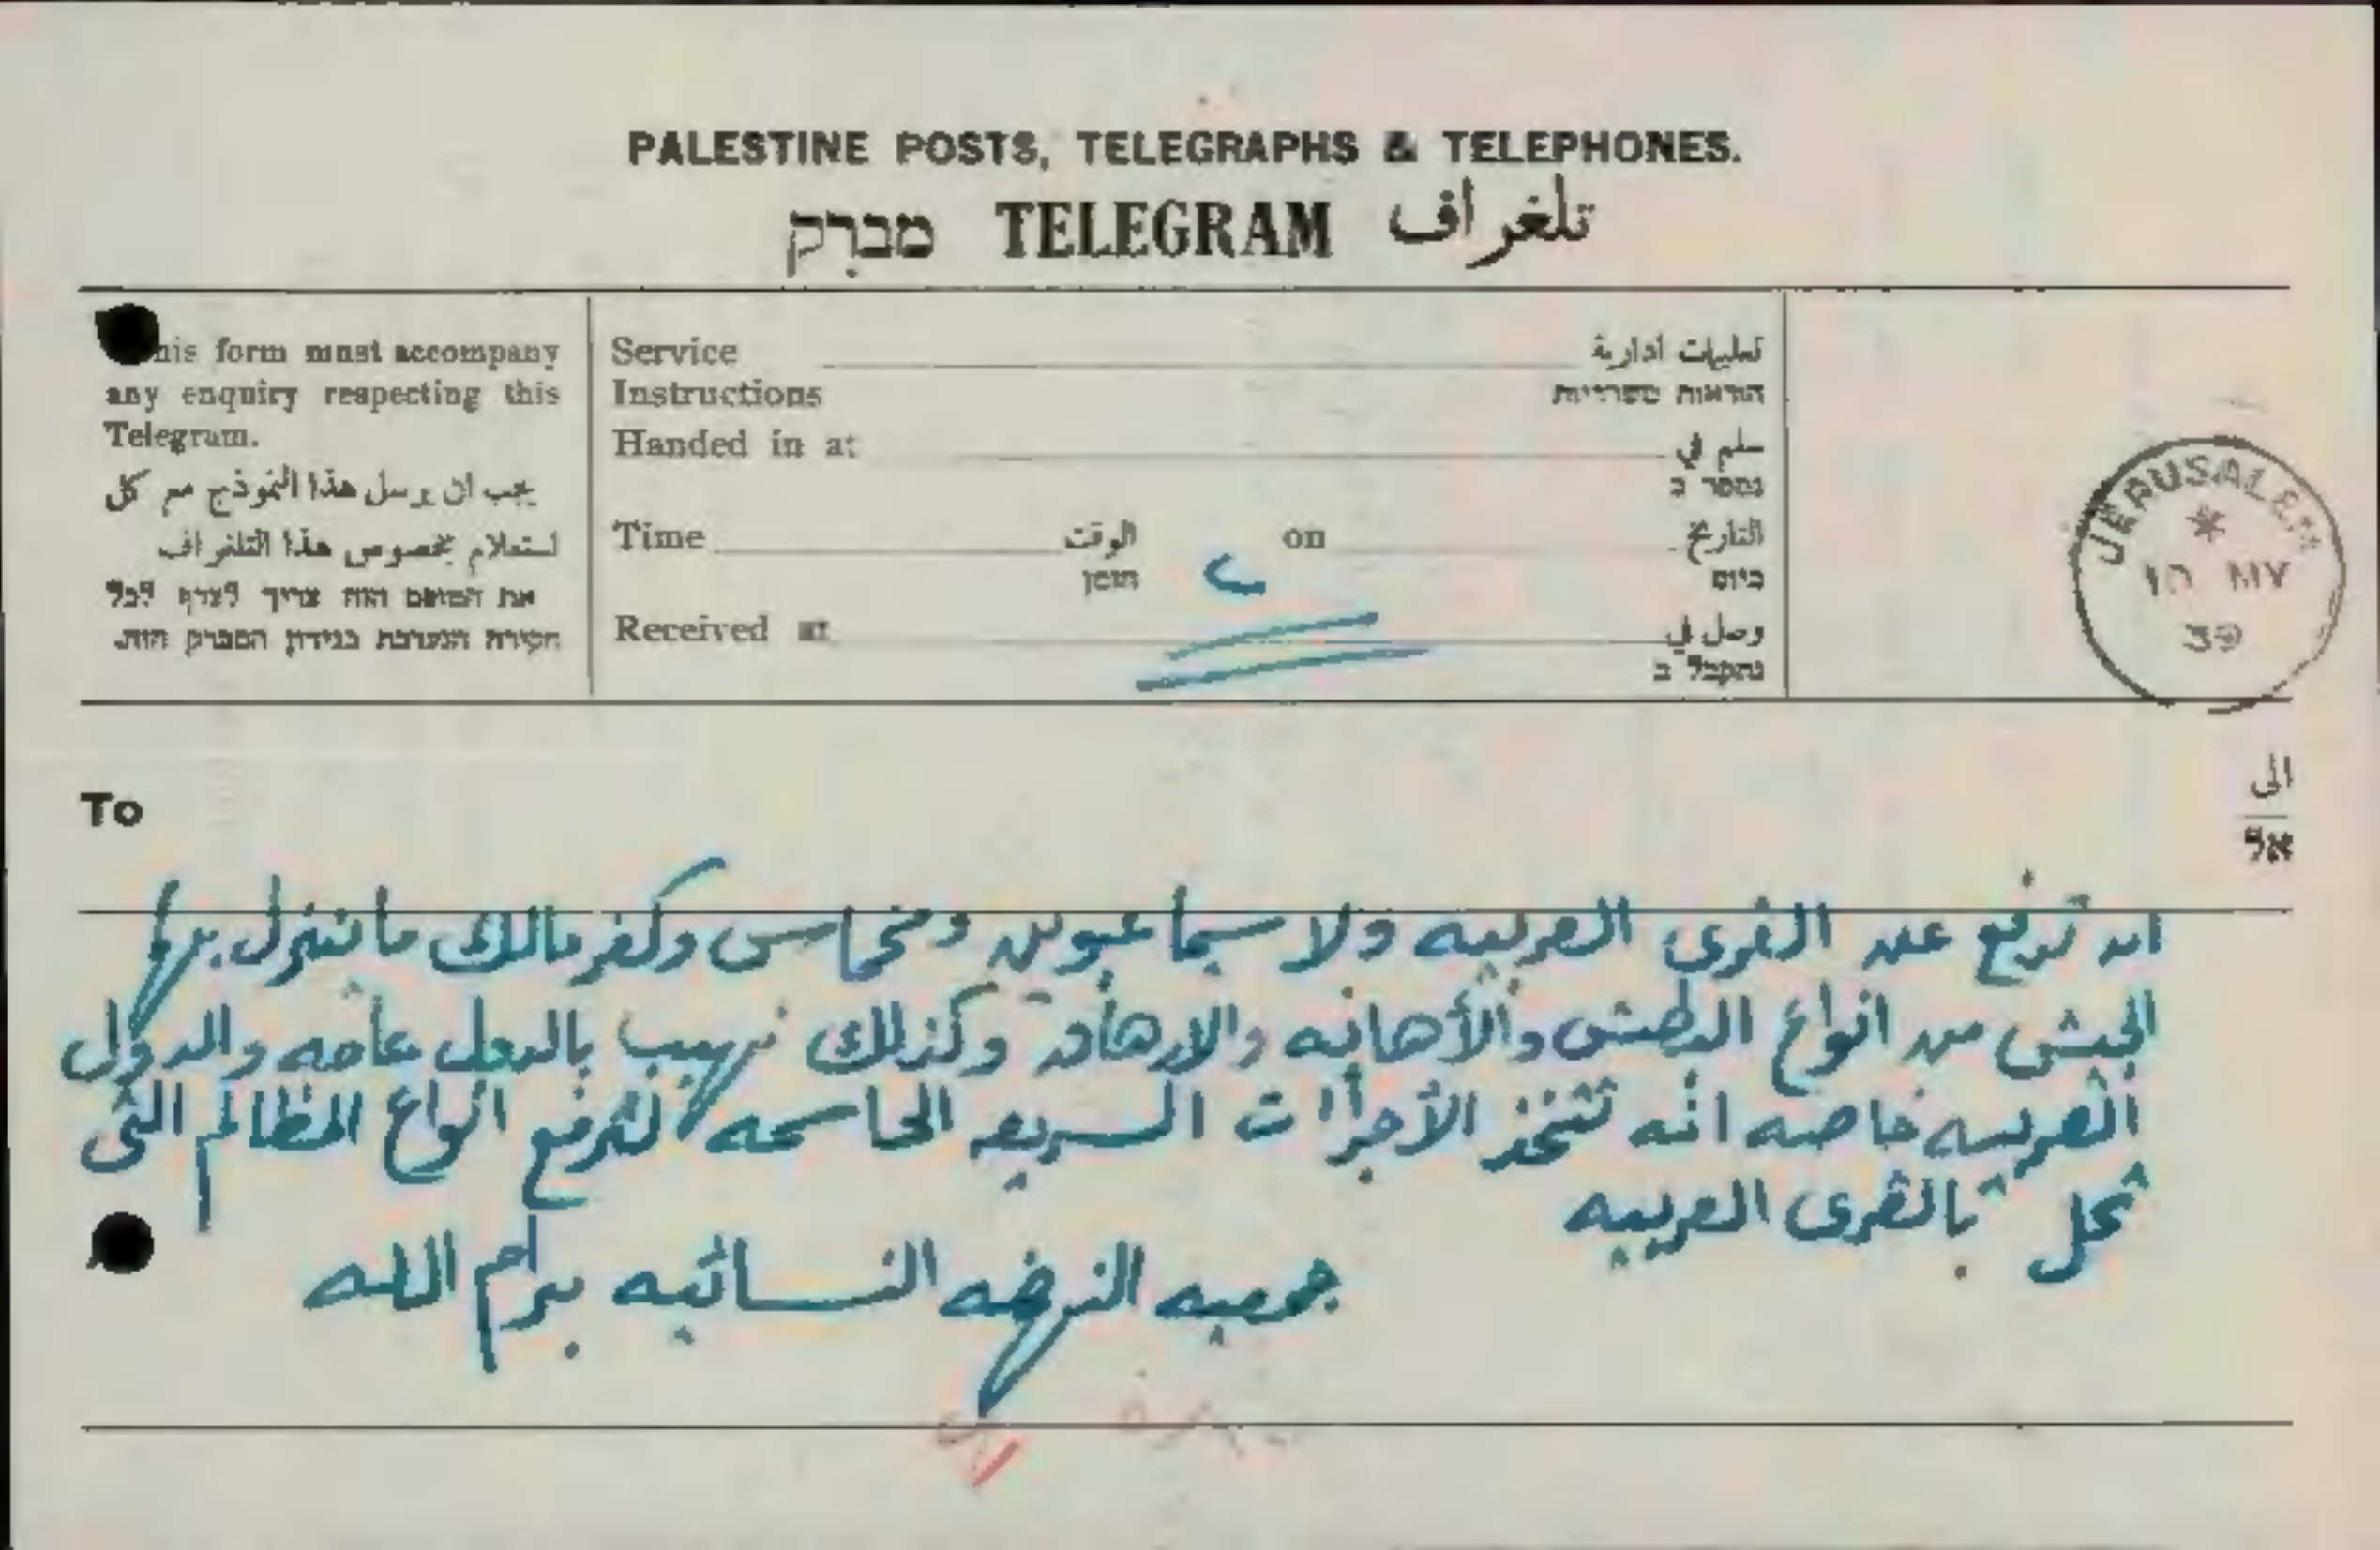 PALESTINE POSTS, TELEGRAPHS & TELEPHONES.
מברק TELEGRAM تلغراف
his form must accompany
any enquiry respecting this
Telegram.
يجب ان يرسل هذا النموذج مع كل
استعلام بخصوص هذا التلغراف
את הטופס הזה צריך לצרף לכל
חקירה הנערכת בנידון המברק הזה.
Service تعليمات ادارية
Instructions הוראות משרדיות
Handed in at سلم في
נמסר ב
Time الوقت on التاريخ
הזמן ביום
Received at وصل في
נתקבל ב
JERUSALEM
10 MY
39
To الى
אל
ان ترفع عن القرى العربيه ولا سيما عبوين ومخماس وكفر مالك ما ينزل بها
الجيش من انواع البطش والأهانه والارهاق وكذلك نهيب بالدول عامه والدول
العربيه خاصه انه تتخذ الأجراات السريعه الحاسمه لترفع انواع المظالم التى
تحل بالقرى العربيه
جمعيه النهضه النسائيه برام الله